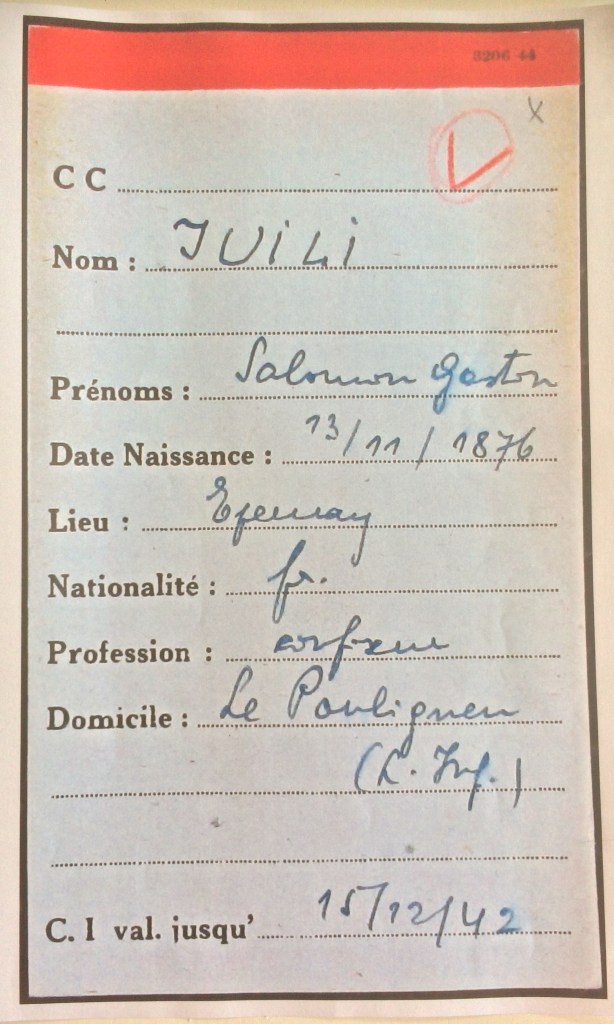 3206 44
X
C C
Nom : JUiLi
Prénoms : Salomon Gaston
Date Naissance : 13/11/1876
Lieu : Epernay
Nationalité : fr.
Profession : coiffeur
Domicile : Le Pouliguen
(L. Inf.)
C. I val. jusqu' 15/12/42